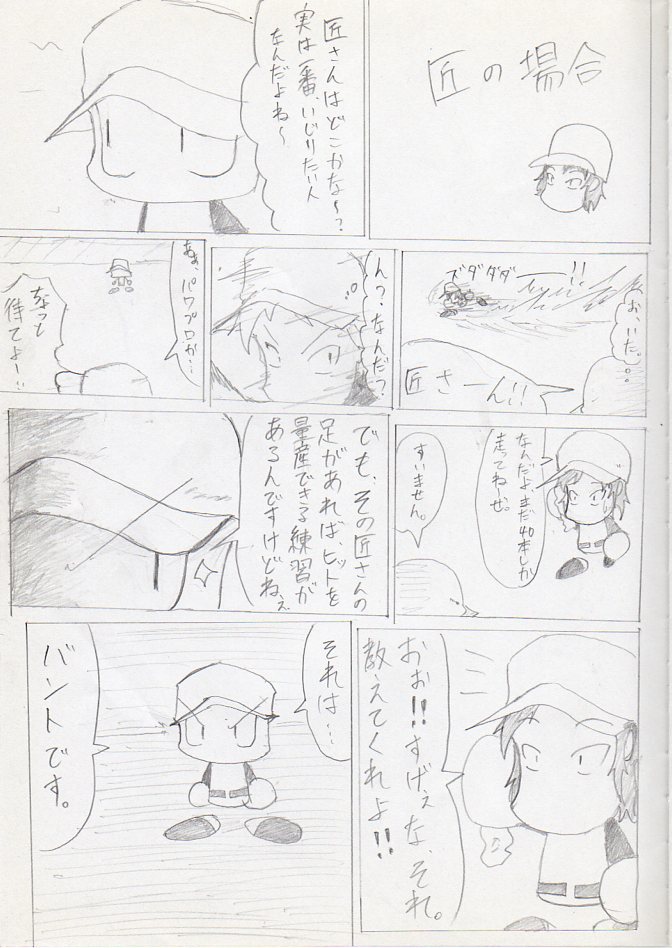 匠の場合
匠さんはどこかな〜?
実は一番、いじりたい人
なんだよね〜
お、いた。
ズダダダ
匠さーん!!
ん?なんだ?
あぁ、パワプロか…
ちょっと
待てよー!!
なんだよまだ40本しか
走ってねーぜ。
すいません。
でも、その匠さんの
足があれば、ヒットを
量産できる練習が
あるんですけどねぇ
おぉ!!すげぇな、それ。
教えてくれよ!!
それは…
バントです。